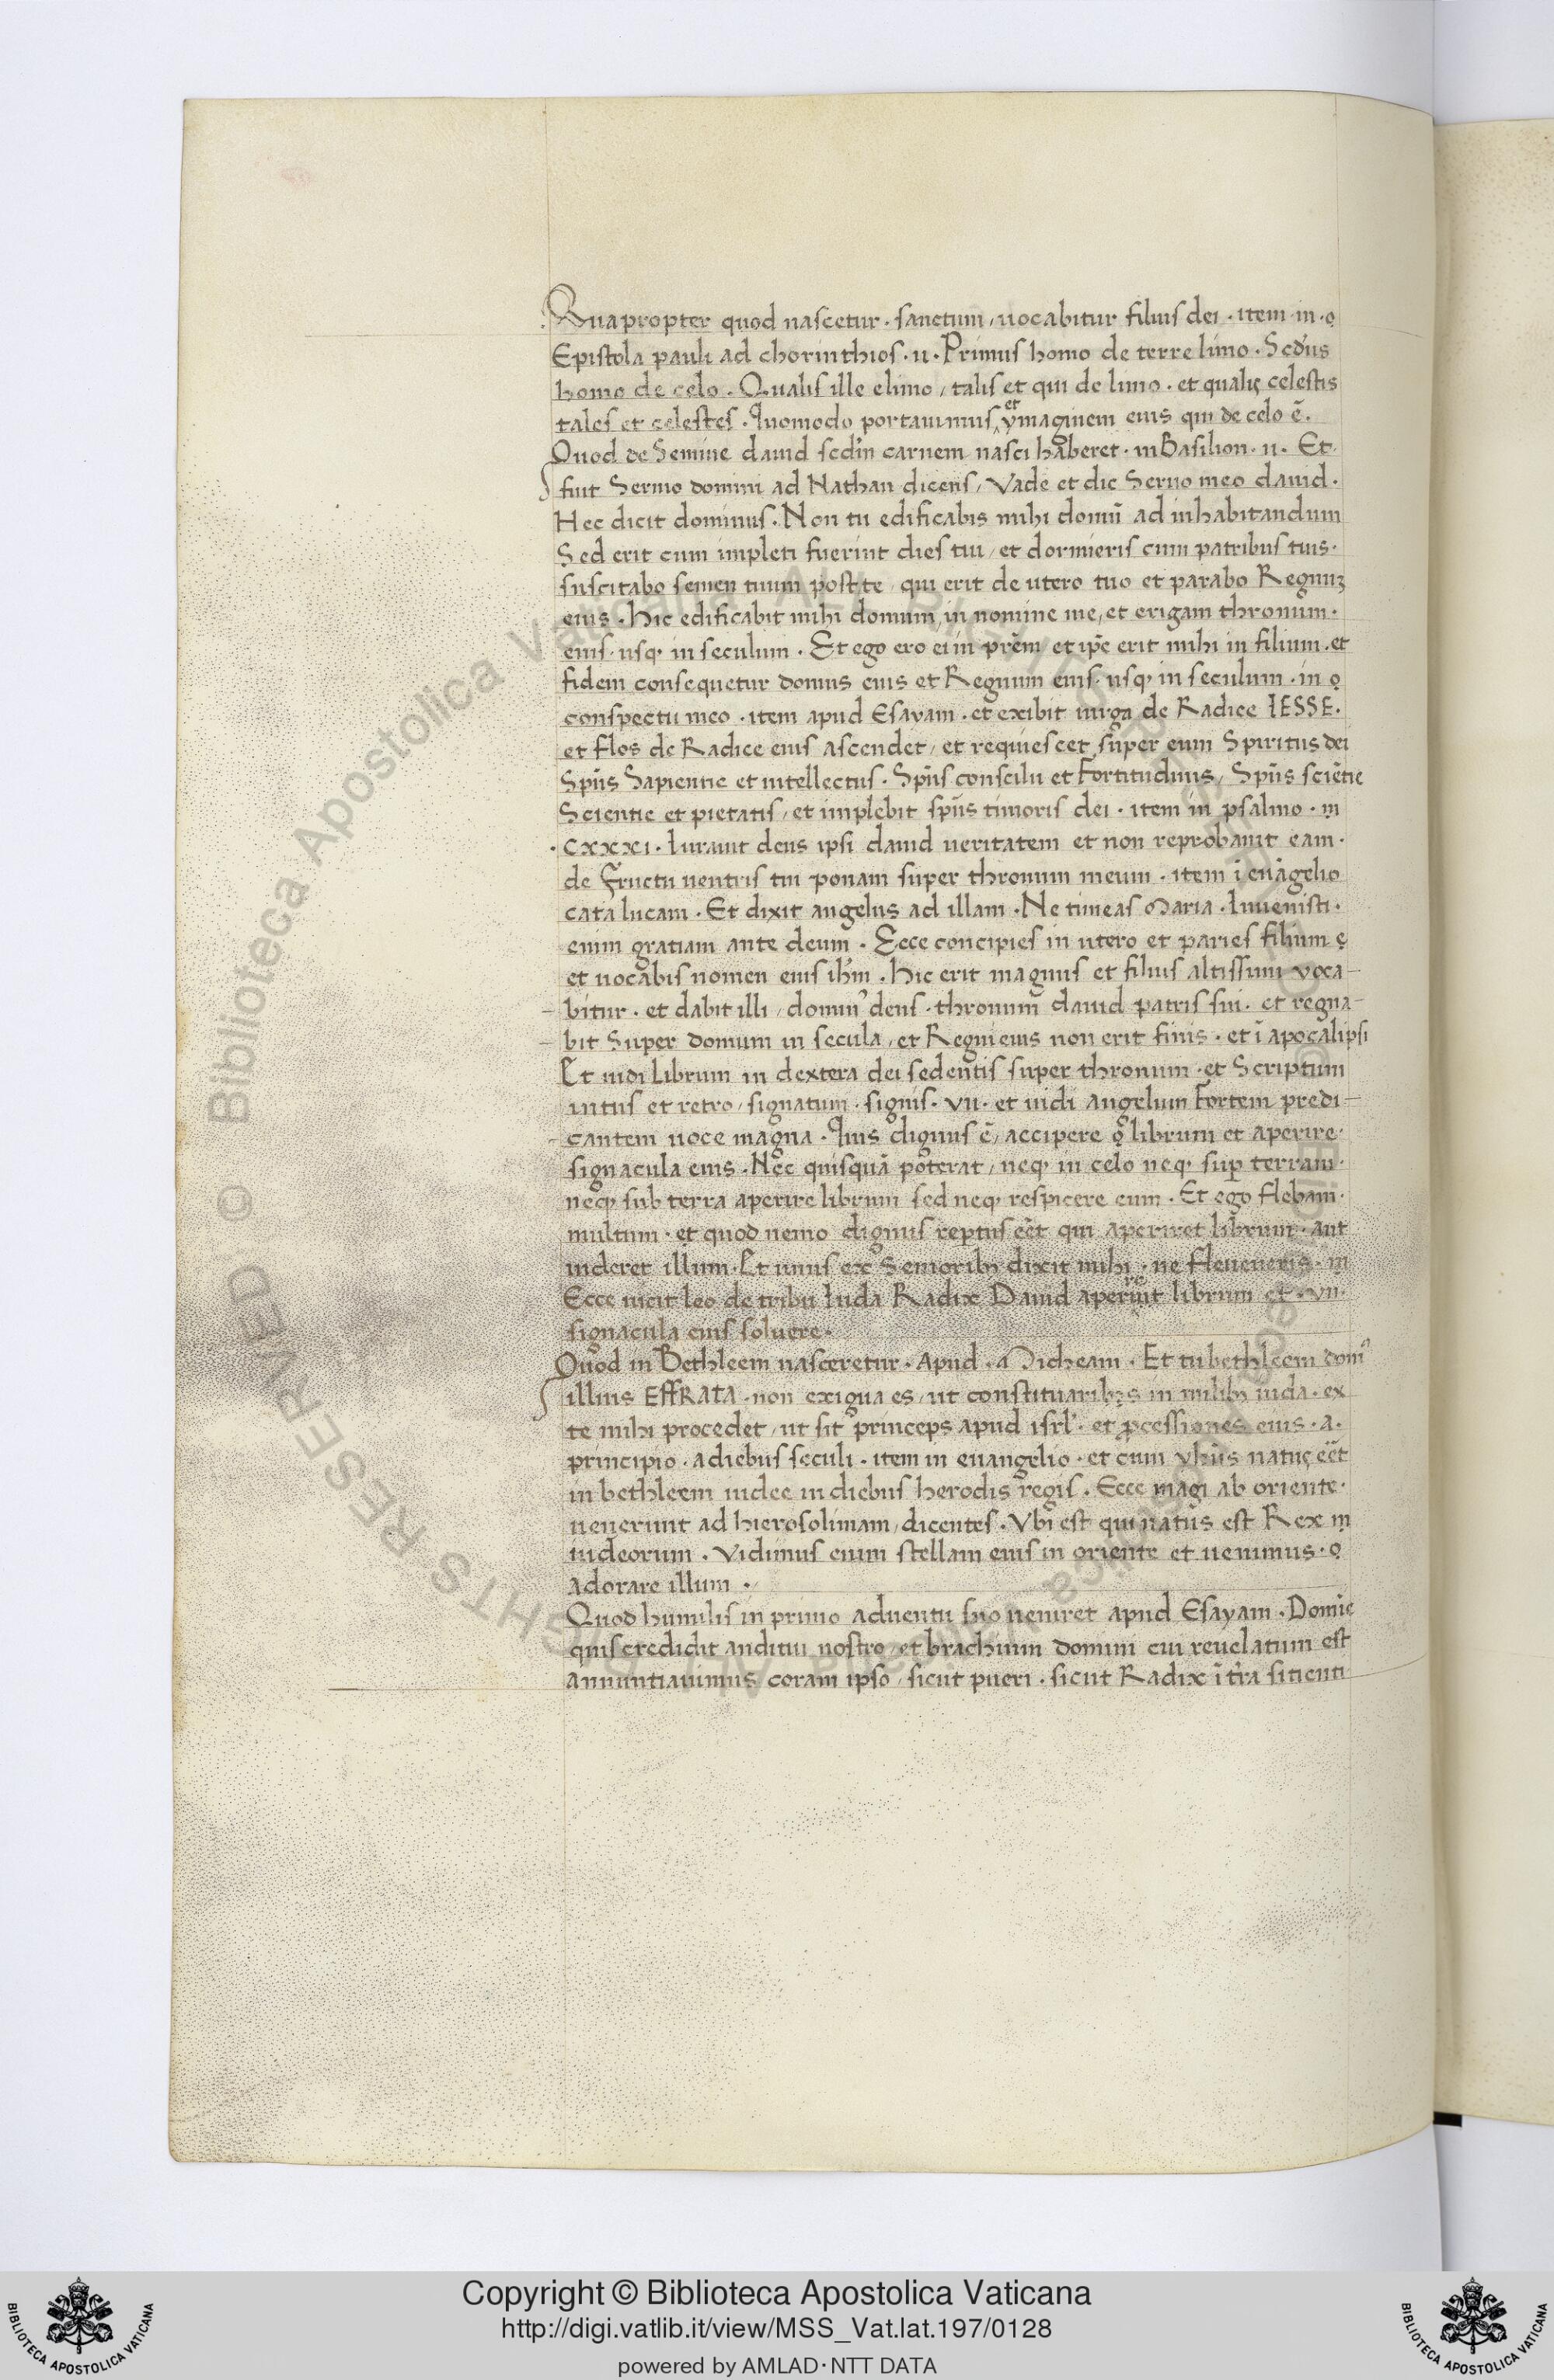 Quapropter quod nascetur · sanctum, uocabitur filius dei · item in · o
Epistola pauli ad chorinthios · ii · Primus homo de terre limo · Scd'us
homo de celo · Qualis ille e limo, talis et qui de limo · et qualis celestis
tales et celestes · Quomodo portauimus et ymaginem eius qui de celo ē.
Quod de Semine dauid scd'm carnem nasci haberet · in Basilion · ii · Et
fuit Sermo domini ad Nathan dicens, Vade et dic Seruo meo dauid ·
Hec dicit dominus · Non tu edificabis mihi domū ad inhabitandum
Sed erit cum impleti fuerint dies tui, et dormieris cum patribus tuis ·
suscitabo semen tuum post te, qui erit de utero tuo et parabo Regnuꝫ
eius · hic edificabit mihi domum, in nomine me, et erigam thronum ·
eius · usq, in seculum · Et ego ero ei in pr̄em et ip̄e erit mihi in filium · et
fidem consequetur domus eius et Regnum eius · usq, in seculum · in o
conspectu meo · item apud Esayam · et exibit uirga de Radice IESSE ·
et flos de Radice eius ascendet, et requiescet super eum Spiritus dei
Sp̄us Sapientie et intellectus · Sp̄us conscilii et Fortitudinis, Sp̄us sciētie
Scientie et pietatis, et implebit sp̄us timoris dei · item in psalmo · m
· cxxxi · Iurauit deus ipsi dauid ueritatem et non reprobauit eam ·
de fructu uentris tui ponam super thronum meum · item ī euāgelio
cata lucam · Et dixit angelus ad illam · Ne timeas Maria · Inuenisti ·
enim gratiam ante deum · Ecce concipies in utero et paries filium e
et uocabis nomen eius ih̄m · hic erit magnus et filius altissimi voca–
– bitur · et dabit illi, domin' deus · thronum dauid patris sui · et regna–
– bit Super domum in secula, et Regni eius non erit finis · et ī apocalipsi
Et uidi Librum in dextera dei sedentis super thronum · et Scriptum
intus et retro, signatum · signis · vii · et uidi angelum fortem predi–
– cantem uoce magna · Quis dignus ē, accipere o librum et aperire ·
signacula eius · Nec quisquā poterat, neq, in celo neq, sup terram ·
neq, sub terra aperire librum sed neq, respicere eum · Et ego flebam ·
multum · et quod nemo dignus reptus eēt qui aperiret librum · aut
uideret illum · Et unus ex Senioribꝫ dixit mihi · ne fleueneris · m
Ecce uicit leo de tribu Iuda Radix Dauid aperire librum et · vii ·
signacula eius soluere ·
Quod in Bethleem nasceretur · Apud · Micheam · Et tu bethleem dom'
illius EFFRATA · non exigua es, ut constituaribꝫs in milibꝫ iuda · ex
te mihi procedet, ut sit princeps apud isrl' · et ꝓcessiones eius · a ·
principio · a diebus seculi · item in euangelio · et cum yh̄us natus eēt
in bethleem iudee in diebus herodis regis · Ecce magi ab oriente ·
uenerunt ad hierosolimam, dicentes · Vbi est qui natus est Rex m
iudeorum · Vidimus enim stellam eius in oriente et uenimus · o
adorare illum ·
Quod humilis in primo aduentu suo ueniret apud Esayam · Domīe
quis credidit auditui nostro, et brachium domini cui reuelatum est
annuntiauimus, coram ipso, sicut pueri · sicut Radix ī tr̄a sitienti
Copyright © Biblioteca Apostolica Vaticana
http://digi.vatlib.it/view/MSS_Vat.lat.197/0128
powered by AMLAD · NTT DATA